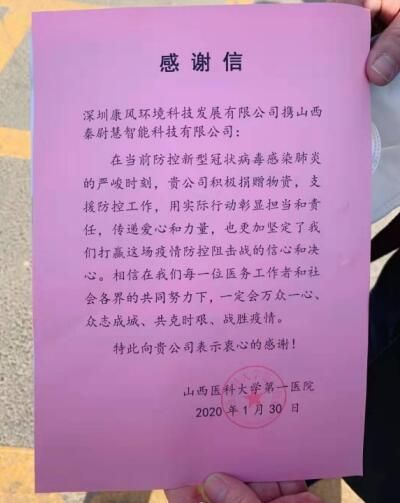 感谢信
深圳康风环境科技发展有限公司携山西
秦尉慧智能科技有限公司：
在当前防控新型冠状病毒感染肺炎
的严峻时刻，贵公司积极捐赠物资，支
援防控工作，用实际行动彰显担当和责
任，传递爱心和力量，也更加坚定了我
们打赢这场疫情防控阻击战的信心和决
心。相信在我们每一位医务工作者和社
会各界的共同努力下，一定会万众一心、
众志成城、共克时艰、战胜疫情。
特此向贵公司表示衷心的感谢！
山西医科大学第一医院
2020年1月30日